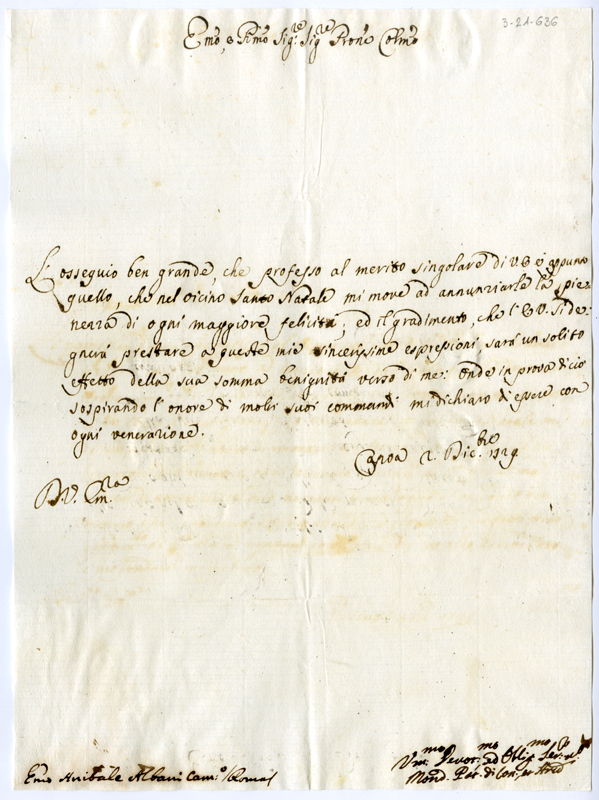 3-21-636
Emo, e Rmo Sigre. Sigre Prone Colmo
L'ossequio ben grande, che professo al merito singolare di V.E. è appunto
quello, che nel vicino Santo Natale mi move ad annunziarle la pie-
nenza di ogni maggiore felicità, ed il gradimento, che l'E.V. si de-
gnerà prestare a queste mie sincerissime espressioni sarà un solito
effetto della sua somma benignità verso di me: Onde in prova di ciò
sospirando l'onore di molti suoi commandi mi dichiaro di essere con
ogni venerazione.
Capoa 2. Dicbre. 1729
D.V. Emra.
Vmo. Devotmo. ed Obligmo Serre
Mond. Pat. di Con. er Arco
Emo Anibale Albani Camo (Roma)